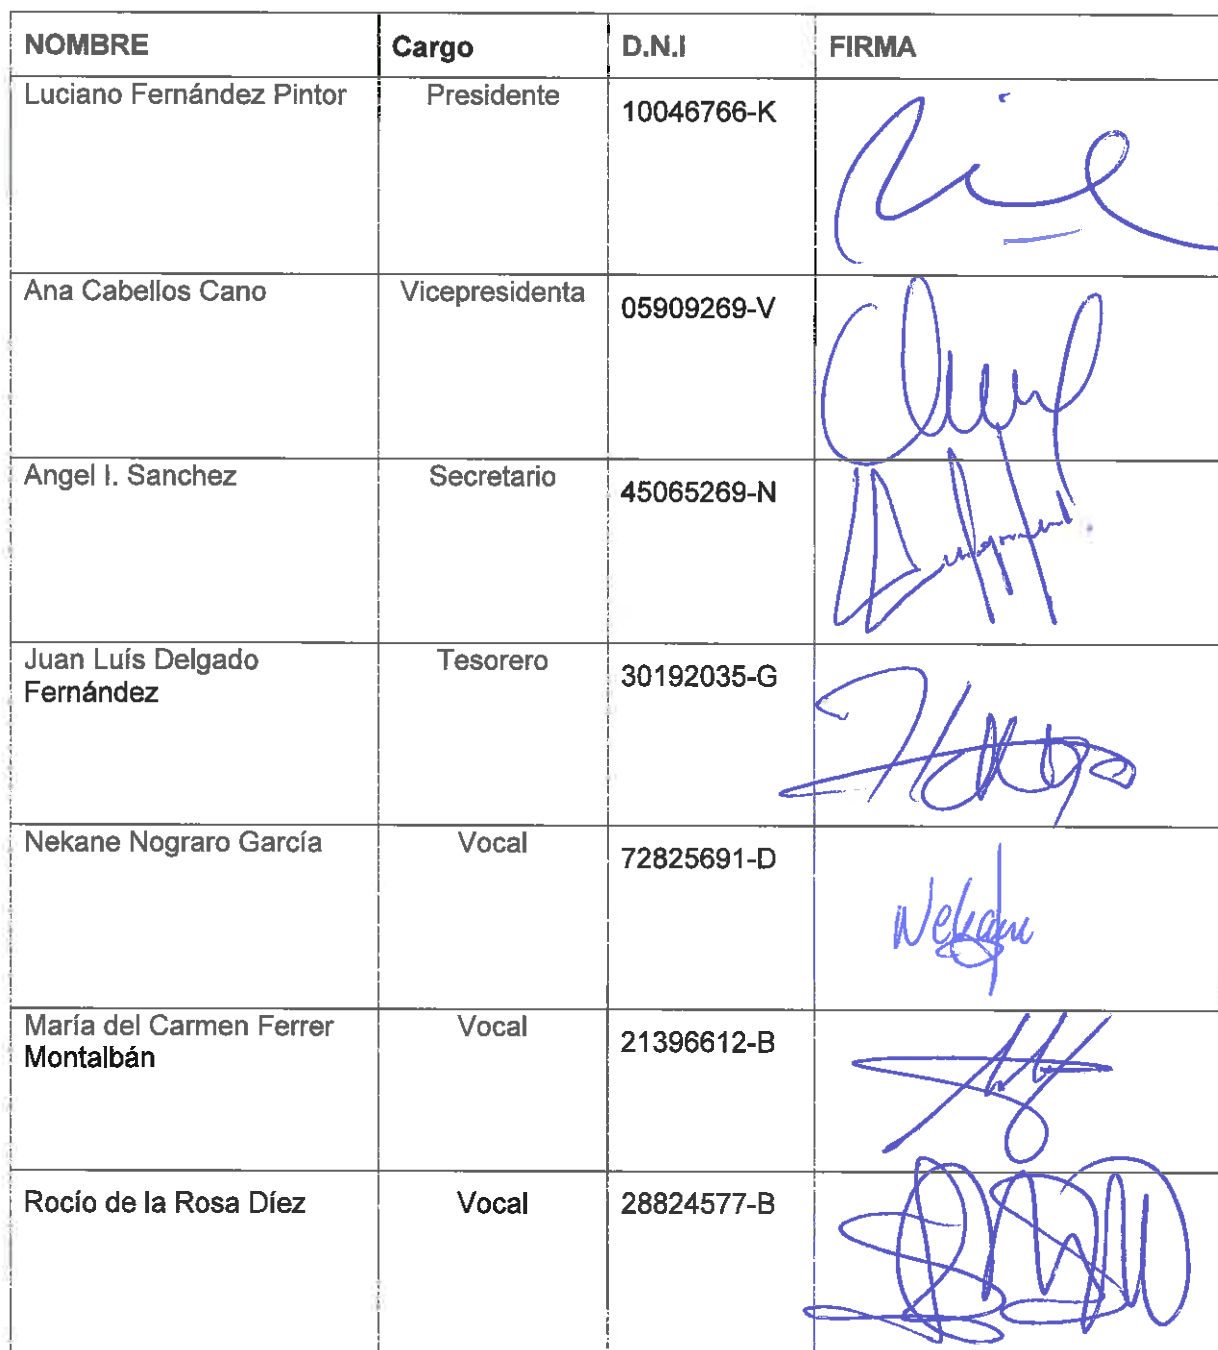 NOMBRE Cargo D.N.I FIRMA
Luciano Fernández Pintor Presidente 10046766-K
Ana Cabellos Cano Vicepresidenta 05909269-V
Angel I. Sanchez Secretario 45065269-N
Juan Luís Delgado Tesorero 30192035-G
Fernández
Nekane Nograro García Vocal 72825691-D
Nekane
María del Carmen Ferrer Vocal 21396612-B
Montalbán
Rocío de la Rosa Díez Vocal 28824577-B